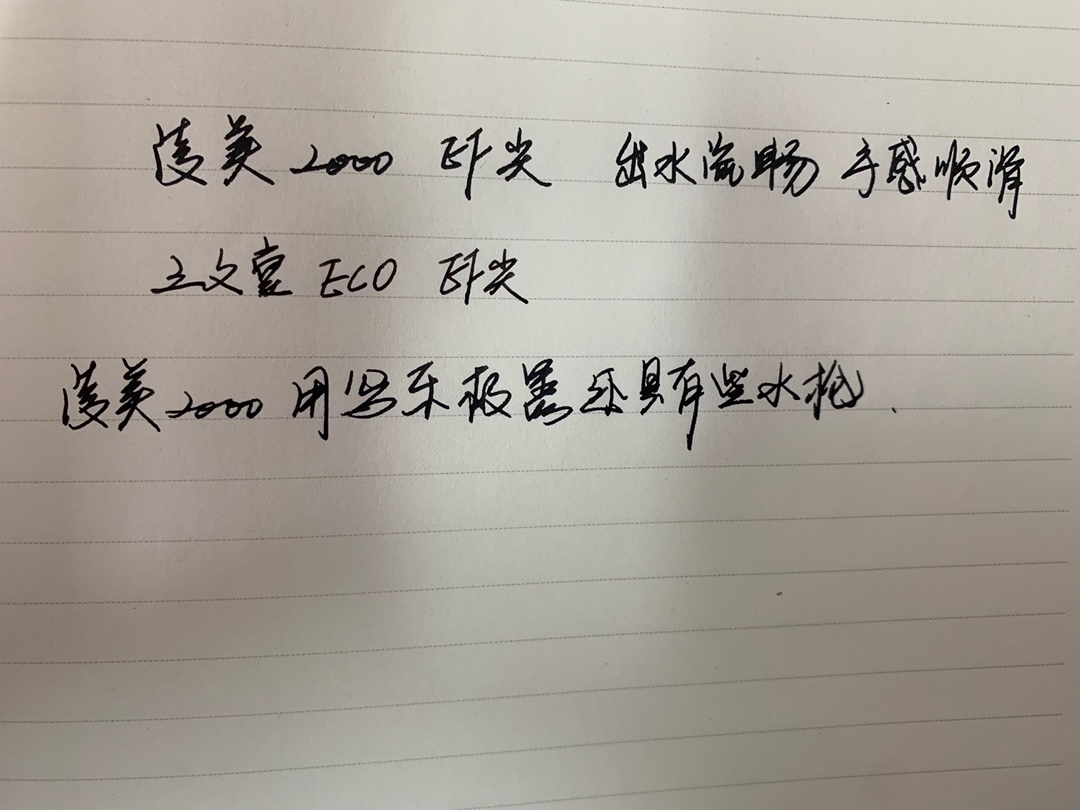 凌美2000 EF尖 出水流畅 手感顺滑
三文堂 ECO EF尖
凌美2000 用写乐极黑还是有些水枪.